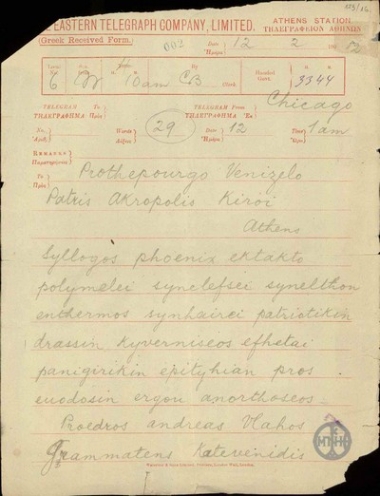 E EASTERN TELEGRAPH COMPANY, LIMITED.
ATHENS STATION
ΤΗΛΕΓΡΑΦΕΙΟΝ ΑΘΗΝΩΝ
(Greek Received Form.)
003
Date
12 2
6 10am CB Clerk.
3344
Chicago
TELEGRAM To
TELEGRAM From
ΤΗΛΕΓΡΑΦΗΜΑ Πρὸς
ΤΗΛΕΓΡΑΦΗΜΑ Ἐκ
No.
Words 29
Date 12
Time 1am
To
Prothepourgo Venizelo
Patris Akropolis Kiroi
Athens
Syllogos phoenix ektakto
polymelei synelefsei synelthon
enthermos synhairei patriotikin
drassin kyverniseos efhetai
panigirikin epityhian pros
euodosin ergou anorthoseos
Proedros andreas Vlahos
Grammatens Katevenidis